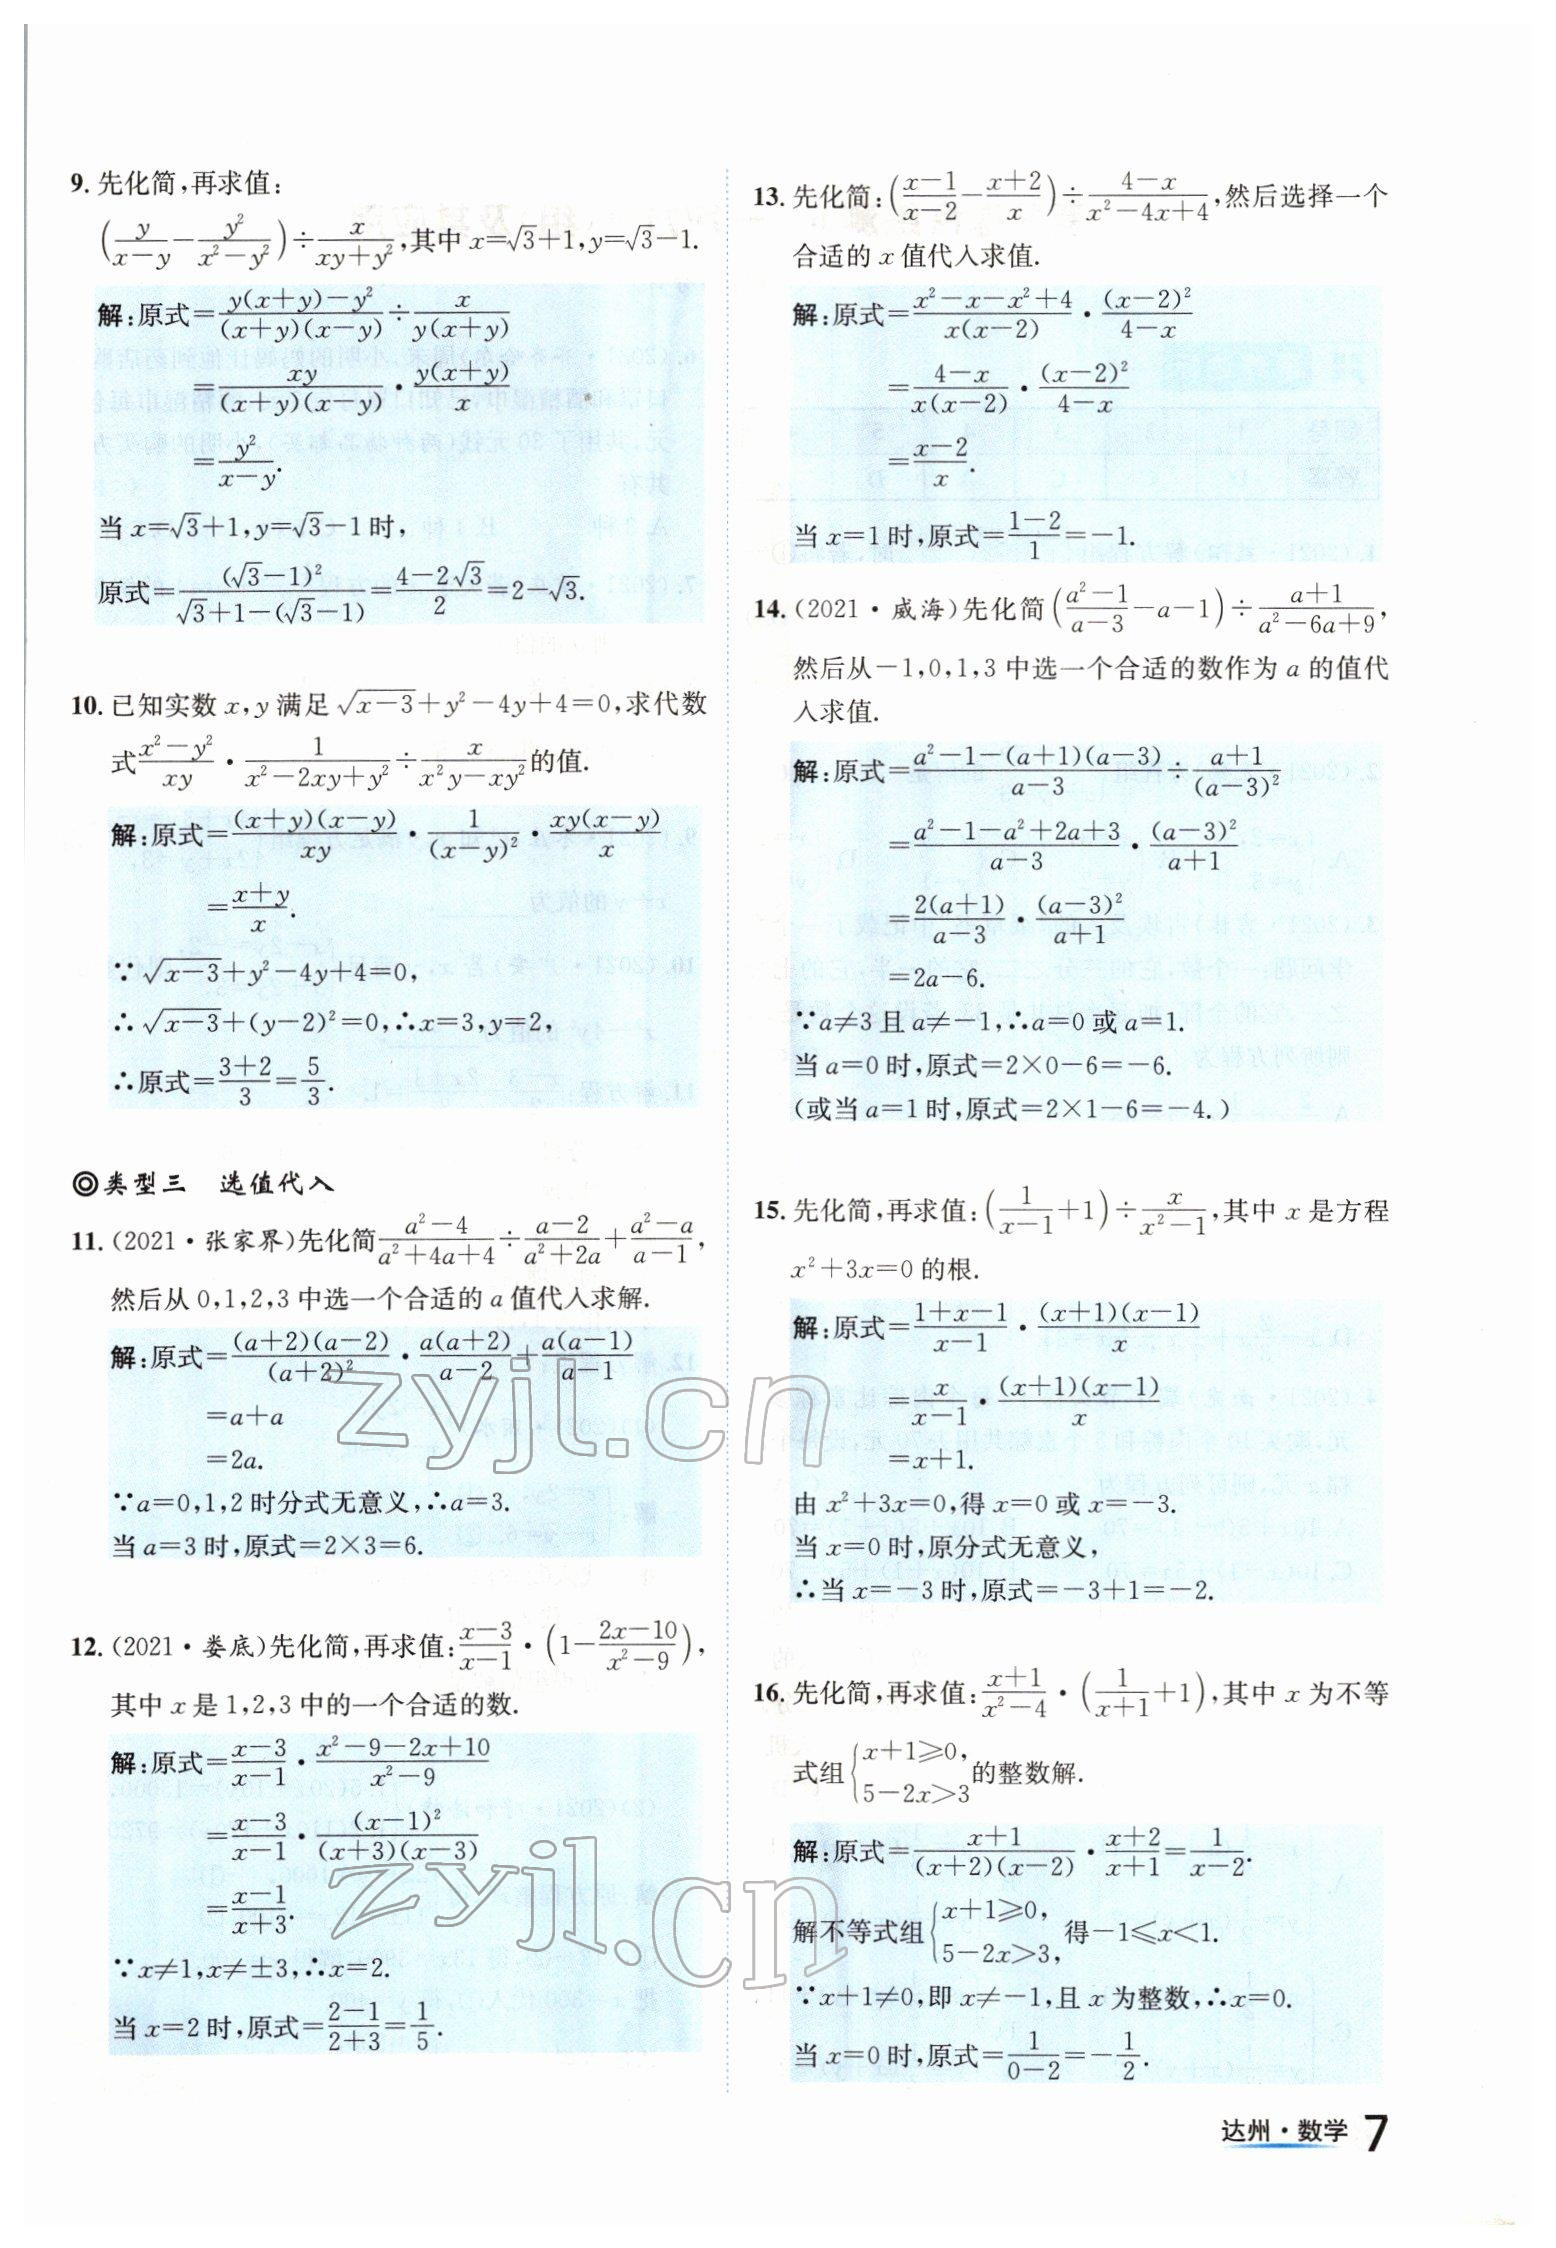 9. 先化简,再求值:
(y/(x-y) - y²/(x²-y²)) ÷ x/(xy+y²),其中 x=√3+1,y=√3-1.
解:原式=(y(x+y)-y²)/((x+y)(x-y)) ÷ x/(y(x+y))
=xy/((x+y)(x-y)) · y(x+y)/x
=y²/(x-y).
当 x=√3+1,y=√3-1 时,
原式=(√3-1)²/(√3+1-(√3-1))=(4-2√3)/2=2-√3.
10. 已知实数 x,y 满足 √(x-3)+y²-4y+4=0,求代数
式 (x²-y²)/xy · 1/(x²-2xy+y²) ÷ x/(x²y-xy²) 的值.
解:原式=(x+y)(x-y)/xy · 1/(x-y)² · xy(x-y)/x
=(x+y)/x.
∵√(x-3)+y²-4y+4=0,
∴√(x-3)+(y-2)²=0,∴x=3,y=2,
∴原式=(3+2)/3=5/3.
◎类型三 选值代入
11. (2021·张家界)先化简 (a²-4)/(a²+4a+4) ÷ (a-2)/(a²+2a) + (a²-a)/(a-1),
然后从 0,1,2,3 中选一个合适的 a 值代入求解.
解:原式=(a+2)(a-2)/(a+2)² · a(a+2)/(a-2) + a(a-1)/(a-1)
=a+a
=2a.
∵a=0,1,2 时分式无意义,∴a=3.
当 a=3 时,原式=2×3=6.
12. (2021·娄底)先化简,再求值: (x-3)/(x-1) · (1-(2x-10)/(x²-9)),
其中 x 是 1,2,3 中的一个合适的数.
解:原式=(x-3)/(x-1) · (x²-9-2x+10)/(x²-9)
=(x-3)/(x-1) · (x-1)²/((x+3)(x-3))
=(x-1)/(x+3).
∵x≠1,x≠±3,∴x=2.
当 x=2 时,原式=(2-1)/(2+3)=1/5.
13. 先化简: ((x-1)/(x-2) - (x+2)/x) ÷ (4-x)/(x²-4x+4),然后选择一个
合适的 x 值代入求值.
解:原式=(x²-x-x²+4)/(x(x-2)) · (x-2)²/(4-x)
=(4-x)/(x(x-2)) · (x-2)²/(4-x)
=(x-2)/x.
当 x=1 时,原式=(1-2)/1=-1.
14. (2021·威海)先化简 ((a²-1)/(a-3) -a-1) ÷ (a+1)/(a²-6a+9),
然后从-1,0,1,3 中选一个合适的数作为 a 的值代
入求值.
解:原式=(a²-1-(a+1)(a-3))/(a-3) ÷ (a+1)/(a-3)²
=(a²-1-a²+2a+3)/(a-3) · (a-3)²/(a+1)
=2(a+1)/(a-3) · (a-3)²/(a+1)
=2a-6.
∵a≠3 且 a≠-1,∴a=0 或 a=1.
当 a=0 时,原式=2×0-6=-6.
(或当 a=1 时,原式=2×1-6=-4.)
15. 先化简,再求值: (1/(x-1)+1) ÷ x/(x²-1),其中 x 是方程
x²+3x=0 的根.
解:原式=(1+x-1)/(x-1) · (x+1)(x-1)/x
=x/(x-1) · (x+1)(x-1)/x
=x+1.
由 x²+3x=0,得 x=0 或 x=-3.
当 x=0 时,原分式无意义,
∴当 x=-3 时,原式=-3+1=-2.
16. 先化简,再求值: (x+1)/(x²-4) · (1/(x+1)+1),其中 x 为不等
式组{x+1≥0, 5-2x>3 的整数解.
解:原式=(x+1)/((x+2)(x-2)) · (x+2)/(x+1)=1/(x-2).
解不等式组{x+1≥0, 5-2x>3, 得-1≤x<1.
∵x+1≠0,即 x≠-1,且 x 为整数,∴x=0.
当 x=0 时,原式=1/(0-2)=-1/2.
达州·数学 7
zyjl.cn
zyjl.cn